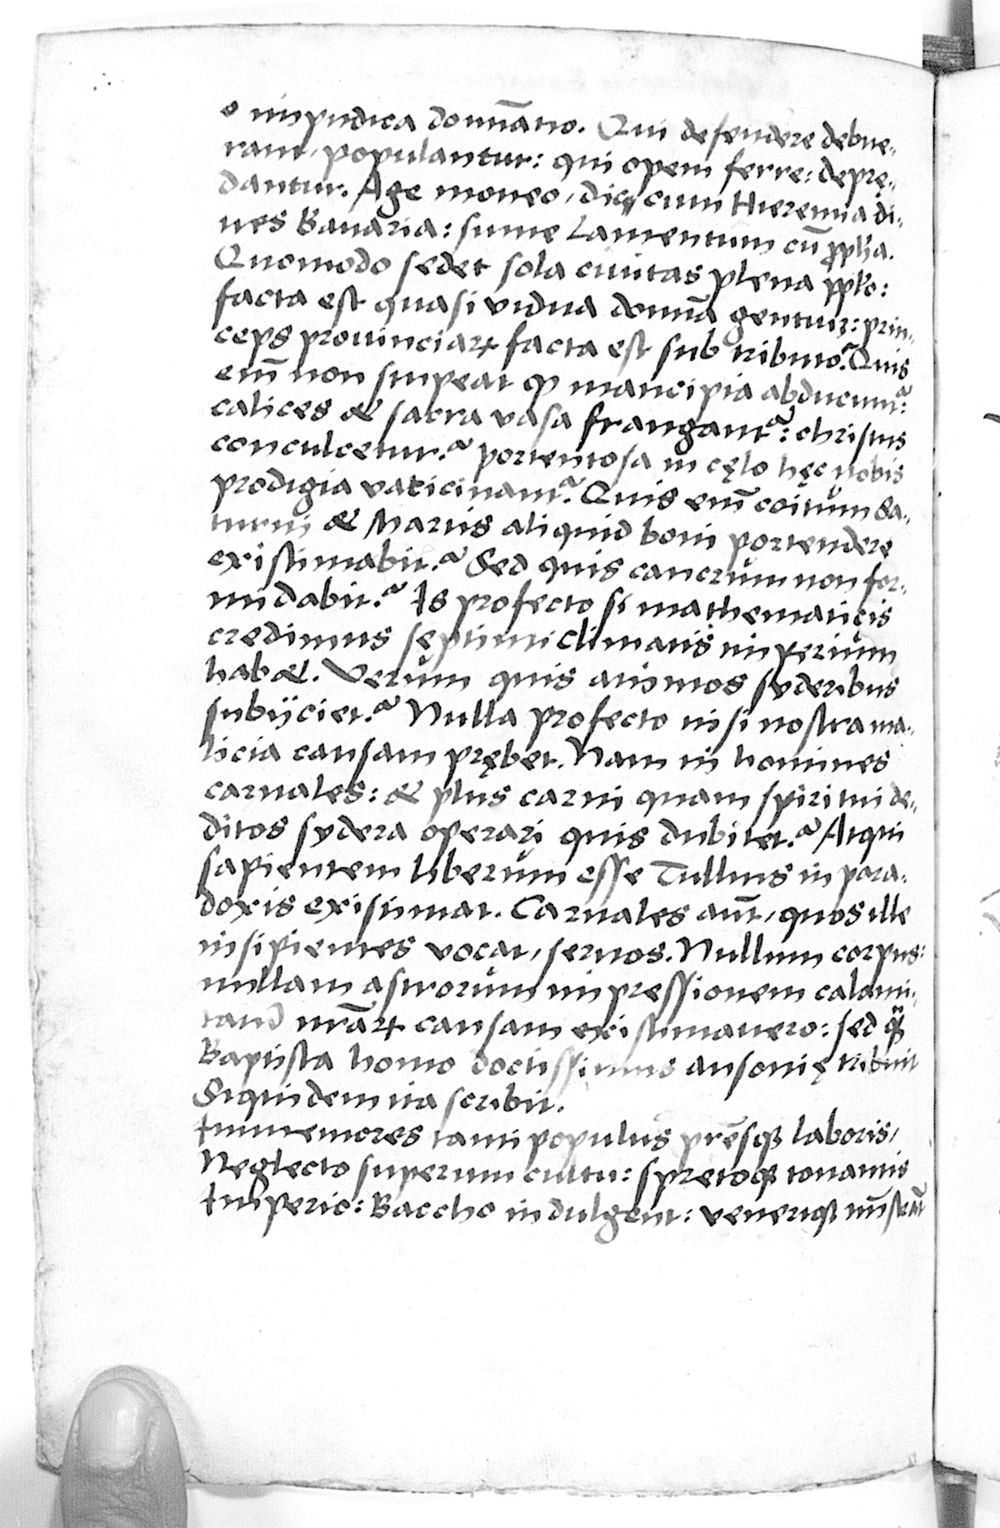 o impudica domīatio. Qui defendere debue-
rant, populantur: qui opem ferre: deprę-
dantur. Age moneo, dic cum Hieremia di-
ues Bauaria: sume Lamentum cū ꝓph̄a.
Quomodo sedet sola ciuitas plena ꝓpl̄o:
facta est quasi vidua domīa gentium: prin-
ceps prouinciaꝝ facta est sub tributo? Quis
em̄ non stupeat ꝙ mancipia abducunt᷑:
calices & sacra vasa frangant᷑: christus
conculcetur? portentosa in cęlo hęc nobis
prodigia vaticinant᷑. Quis em̄ coitum Sa-
turni & Martis aliquid boni portendere
existimabit? Sed quis cancrum non for-
midabit? Is profecto si mathematicis
credimus septimi climatis imperium
habet. Verum quis animos syderibus
subijciet? Nulla profecto nisi nostra ma-
licia causam prębet. Nam in homines
carnales: & plus carni quam spiritui de-
ditos sydera operari quis dubitet? Atqui
sapientem liberum esse Tullius in para-
doxis existimat. Carnales aūt, quos ille
insipientes vocat, seruos. Nullum corpus:
nullam astrorum impressionem calami-
tatū nr̄aꝝ causam existimauero: sed q̄
Baptista homo doctissimus ausonię tribuit
Siquidem ita scribit.
Immemores tanti populus pr̄esqꝫ laboris,
Neglecto superum cultu: spretoqꝫ tonantis
Imperio: Baccho indulgent: veneriqꝫ mīstrāt